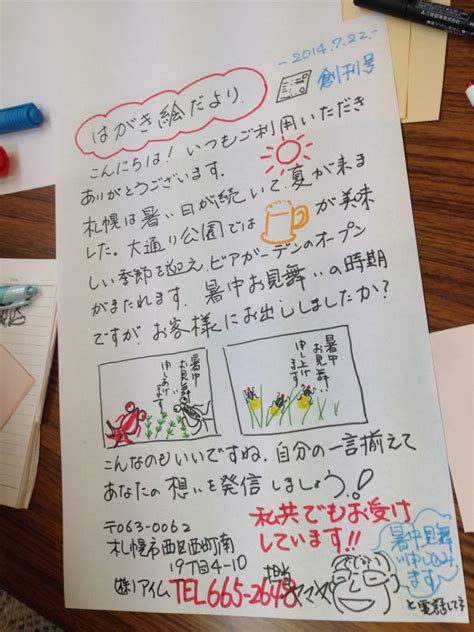 -2014.7.22.-
創刊号
はがき絵だより
こんにちは！いつもご利用いただき
ありがとうございます。
札幌は暑い日が続いて、夏が来ま
した。大通り公園では が美味
しい季節を迎え、ビアガーデンのオープン
がまたれます。暑中お見舞いの時期
ですが、お客様にお出ししましたか？
暑中
お見舞い
申しあげ
ます
暑中
お見舞い
申し上げ
ます
こんなのもいいですね。自分の一言揃えて
あなたの想いを発信しましょう。!
〒063-0062
札幌市西区西町南
19丁目4-10
(株)アイム TEL 665-2648
私共でもお受け
しています!!
担当
ヤマ
暑中見舞
い申し込み
ます
と電話してネ